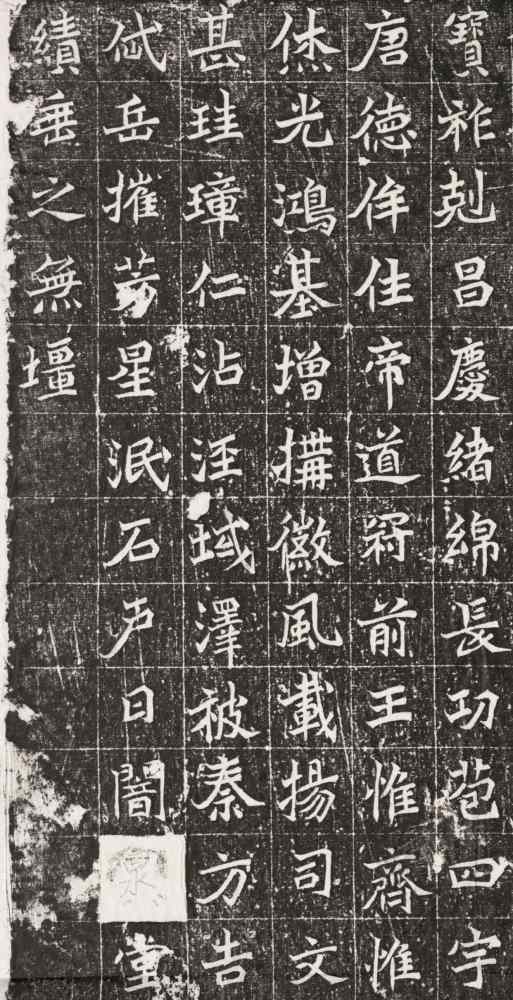 寶祚剋昌慶緒綿長功苞四宇
唐德侔住帝道冠前王惟齊惟
烋光鴻基增構徽風載揚司文
甚珪璋仁沾汪域澤被秦方告
岳摧芳星泯石戶日闇泉堂
績垂之無壃